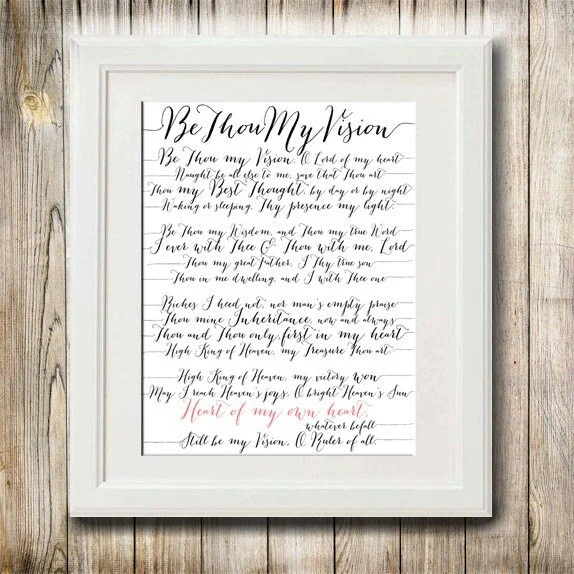 Be Thou My Vision
Be Thou my Vision, O Lord of my heart
Naught be all else to me, save that Thou art
Thou my Best Thought, by day or by night
Waking or sleeping, Thy presence my light.
Be Thou my Wisdom, and Thou my true Word
I ever with Thee & Thou with me, Lord
Thou my great Father, I Thy true son
Thou in me dwelling, and I with Thee one
Riches I heed not, nor man's empty praise
Thou mine Inheritance, now and always
Thou and Thou only, first in my heart
High King of Heaven, my Treasure Thou art.
High King of Heaven, my victory won
May I reach Heaven's joys, O bright Heaven's Sun
Heart of my own heart,
whatever befall
Still be my Vision, O Ruler of all.